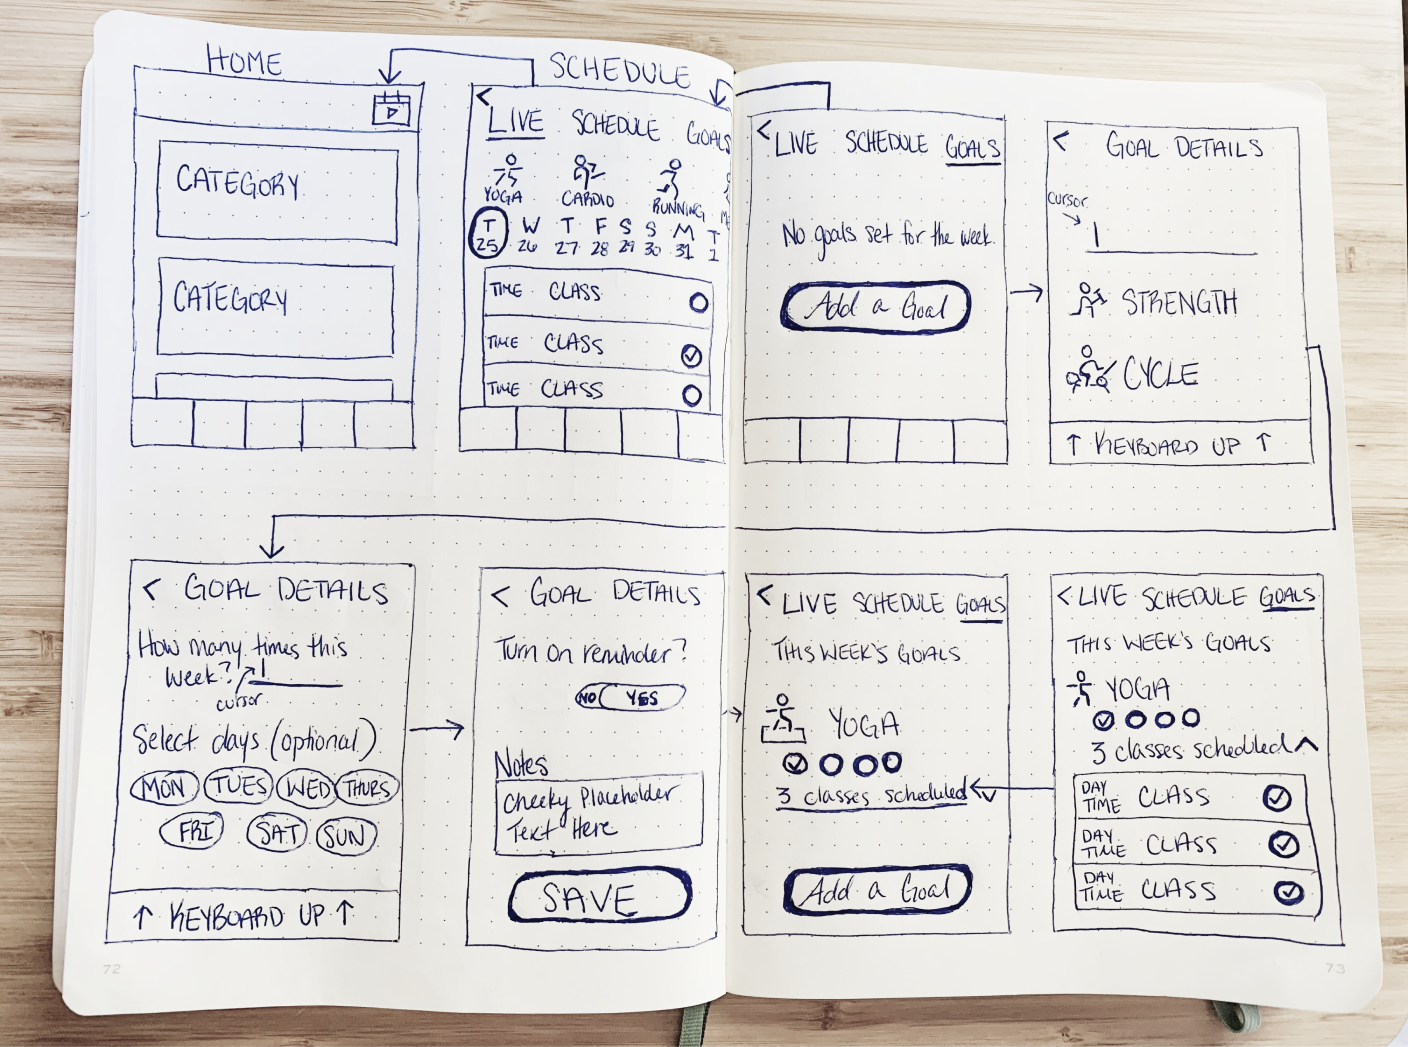 HOME
CATEGORY
CATEGORY
SCHEDULE
<
LIVE SCHEDULE GOALS
YOGA CARDIO RUNNING
T W T F S S M T
25 26 27 28 29 30 31 1
TIME CLASS
TIME CLASS
TIME CLASS
< LIVE SCHEDULE GOALS
No goals set for the week.
Add a Goal
< GOAL DETAILS
cursor
STRENGTH
CYCLE
↑ KEYBOARD UP ↑
< GOAL DETAILS
How many times this
week?
cursor
Select days (optional)
MON TUES WED THURS
FRI SAT SUN
↑ KEYBOARD UP ↑
< GOAL DETAILS
Turn on reminder?
NO YES
Notes
Cheeky Placeholder
Text Here
SAVE
< LIVE SCHEDULE GOALS
THIS WEEK'S GOALS
YOGA
3 classes scheduled
Add a Goal
< LIVE SCHEDULE GOALS
THIS WEEK'S GOALS
YOGA
3 classes scheduled
DAY
TIME CLASS
DAY
TIME CLASS
DAY
TIME CLASS
72
73